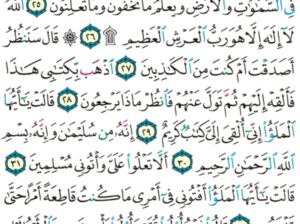 فِي ٱلسَّمَٰوَٰتِ وَٱلْأَرْضِ وَيَعْلَمُ مَا تُخْفُونَ وَمَا تُعْلِنُونَ ٢٥ ٱللَّهُ
لَآ إِلَٰهَ إِلَّا هُوَ رَبُّ ٱلْعَرْشِ ٱلْعَظِيمِ ۩ ٢٦ ۞ قَالَ سَنَنظُرُ
أَصَدَقْتَ أَمْ كُنتَ مِنَ ٱلْكَٰذِبِينَ ٢٧ ٱذْهَب بِّكِتَٰبِي هَٰذَا
فَأَلْقِهْ إِلَيْهِمْ ثُمَّ تَوَلَّ عَنْهُمْ فَٱنظُرْ مَاذَا يَرْجِعُونَ ٢٨ قَالَتْ يَٰٓأَيُّهَا
ٱلْمَلَؤُا۟ إِنِّيٓ أُلْقِيَ إِلَيَّ كِتَٰبٌ كَرِيمٌ ٢٩ إِنَّهُۥ مِن سُلَيْمَٰنَ وَإِنَّهُۥ بِسْمِ
ٱللَّهِ ٱلرَّحْمَٰنِ ٱلرَّحِيمِ ٣٠ أَلَّا تَعْلُوا۟ عَلَيَّ وَأْتُونِي مُسْلِمِينَ ٣١
قَالَتْ يَٰٓأَيُّهَا ٱلْمَلَؤُا۟ أَفْتُونِي فِيٓ أَمْرِي مَا كُنتُ قَاطِعَةً أَمْرًا حَتَّىٰ